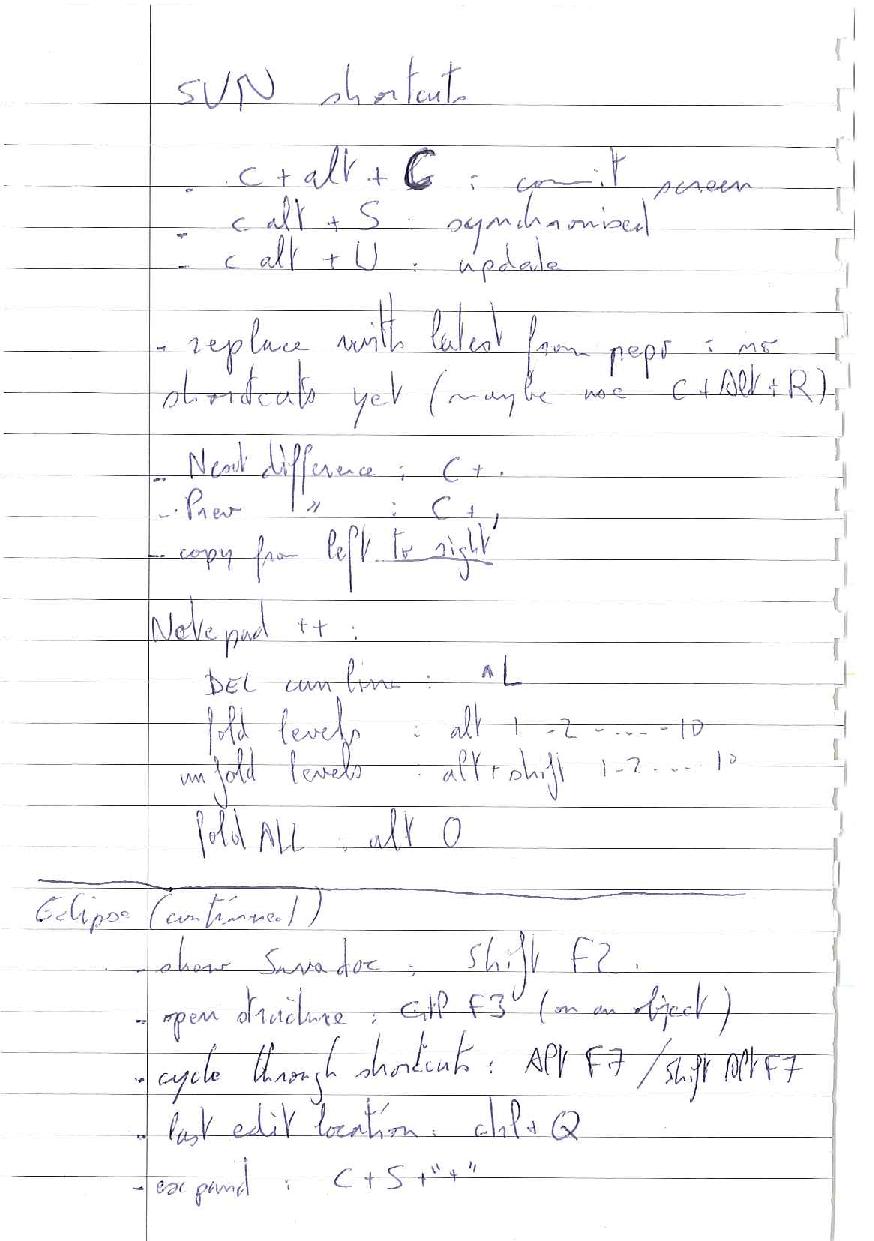 SVN shortcuts
- C + alt + C : commit screen
- c alt + S : synchronised
- c alt + U : update
- replace with latest from repo : no
shortcuts yet (maybe use C + Alt + R)
- Next difference : C + .
- Prev " : C + ,
- copy from left to right
Notepad ++ :
DEL curr line : ^L
fold levels : alt 1 - 2 - .... - 10
unfold levels : alt + shift 1 - 2 .... 10
fold ALL : alt 0
Eclipse (continued)
- show Javadoc : Shift F2.
- open structure : Ctrl F3 (on an object)
- cycle through shortcuts : Alt F7 / Shift Alt F7
- last edit location : ctrl + Q
- expand : C + S + "+"